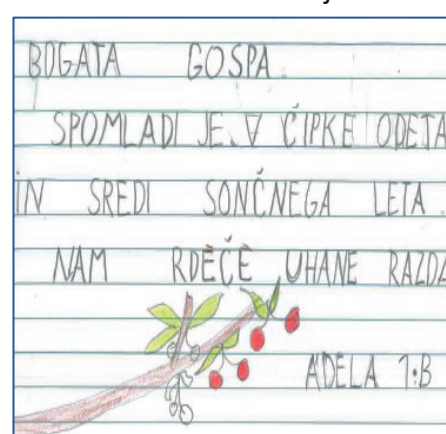 BOGATA GOSPA
SPOMLADI JE V ČIPKE ODETA
IN SREDI SONČNEGA LETA
NAM RDEČE UHANE
ADELA 1.B